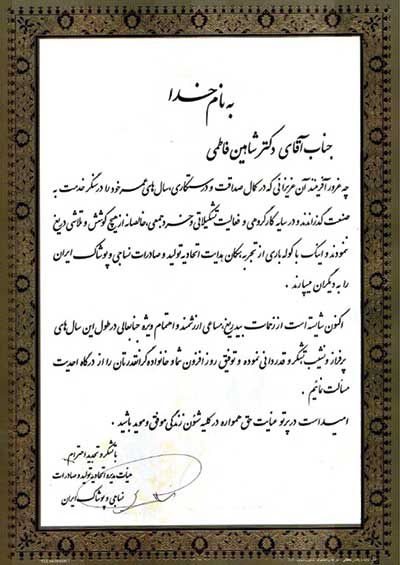 به نام خدا
جناب آقای دکتر شاهین فاطمی
چه غرور آفرینند آن عزیزانی که در کمال صداقت و درستکاری، سال های عمر خود را در سنگر خدمت به
صنعت گذراندند و در سایه کار گروهی و فعالیت تشکیلاتی و خرد جمعی، خالصانه از هیچ کوشش و تلاشی دریغ
ننمودند و اینک با کوله باری از تجربه سکان هدایت اتحادیه تولید و صادرات نساجی و پوشاک ایران
را به دیگران میسپارند .
اکنون شایسته است از زحمات بیدریغ، مساعی ارزشمند و اهتمام ویژه جنابعالی در طول این سال های
پر فراز و نشیب تشکر و قدردانی نموده و توفیق روز افزون شما و خانواده گرانقدرتان را از درگاه احدیت
مسألت نمائیم .
امید است در پرتو عنایت حق همواره در کلیه شئون زندگی موفق و موید باشید .
با تشکر و تجدید احترام
هیأت مدیره اتحادیه تولید و صادرات
نساجی و پوشاک ایران